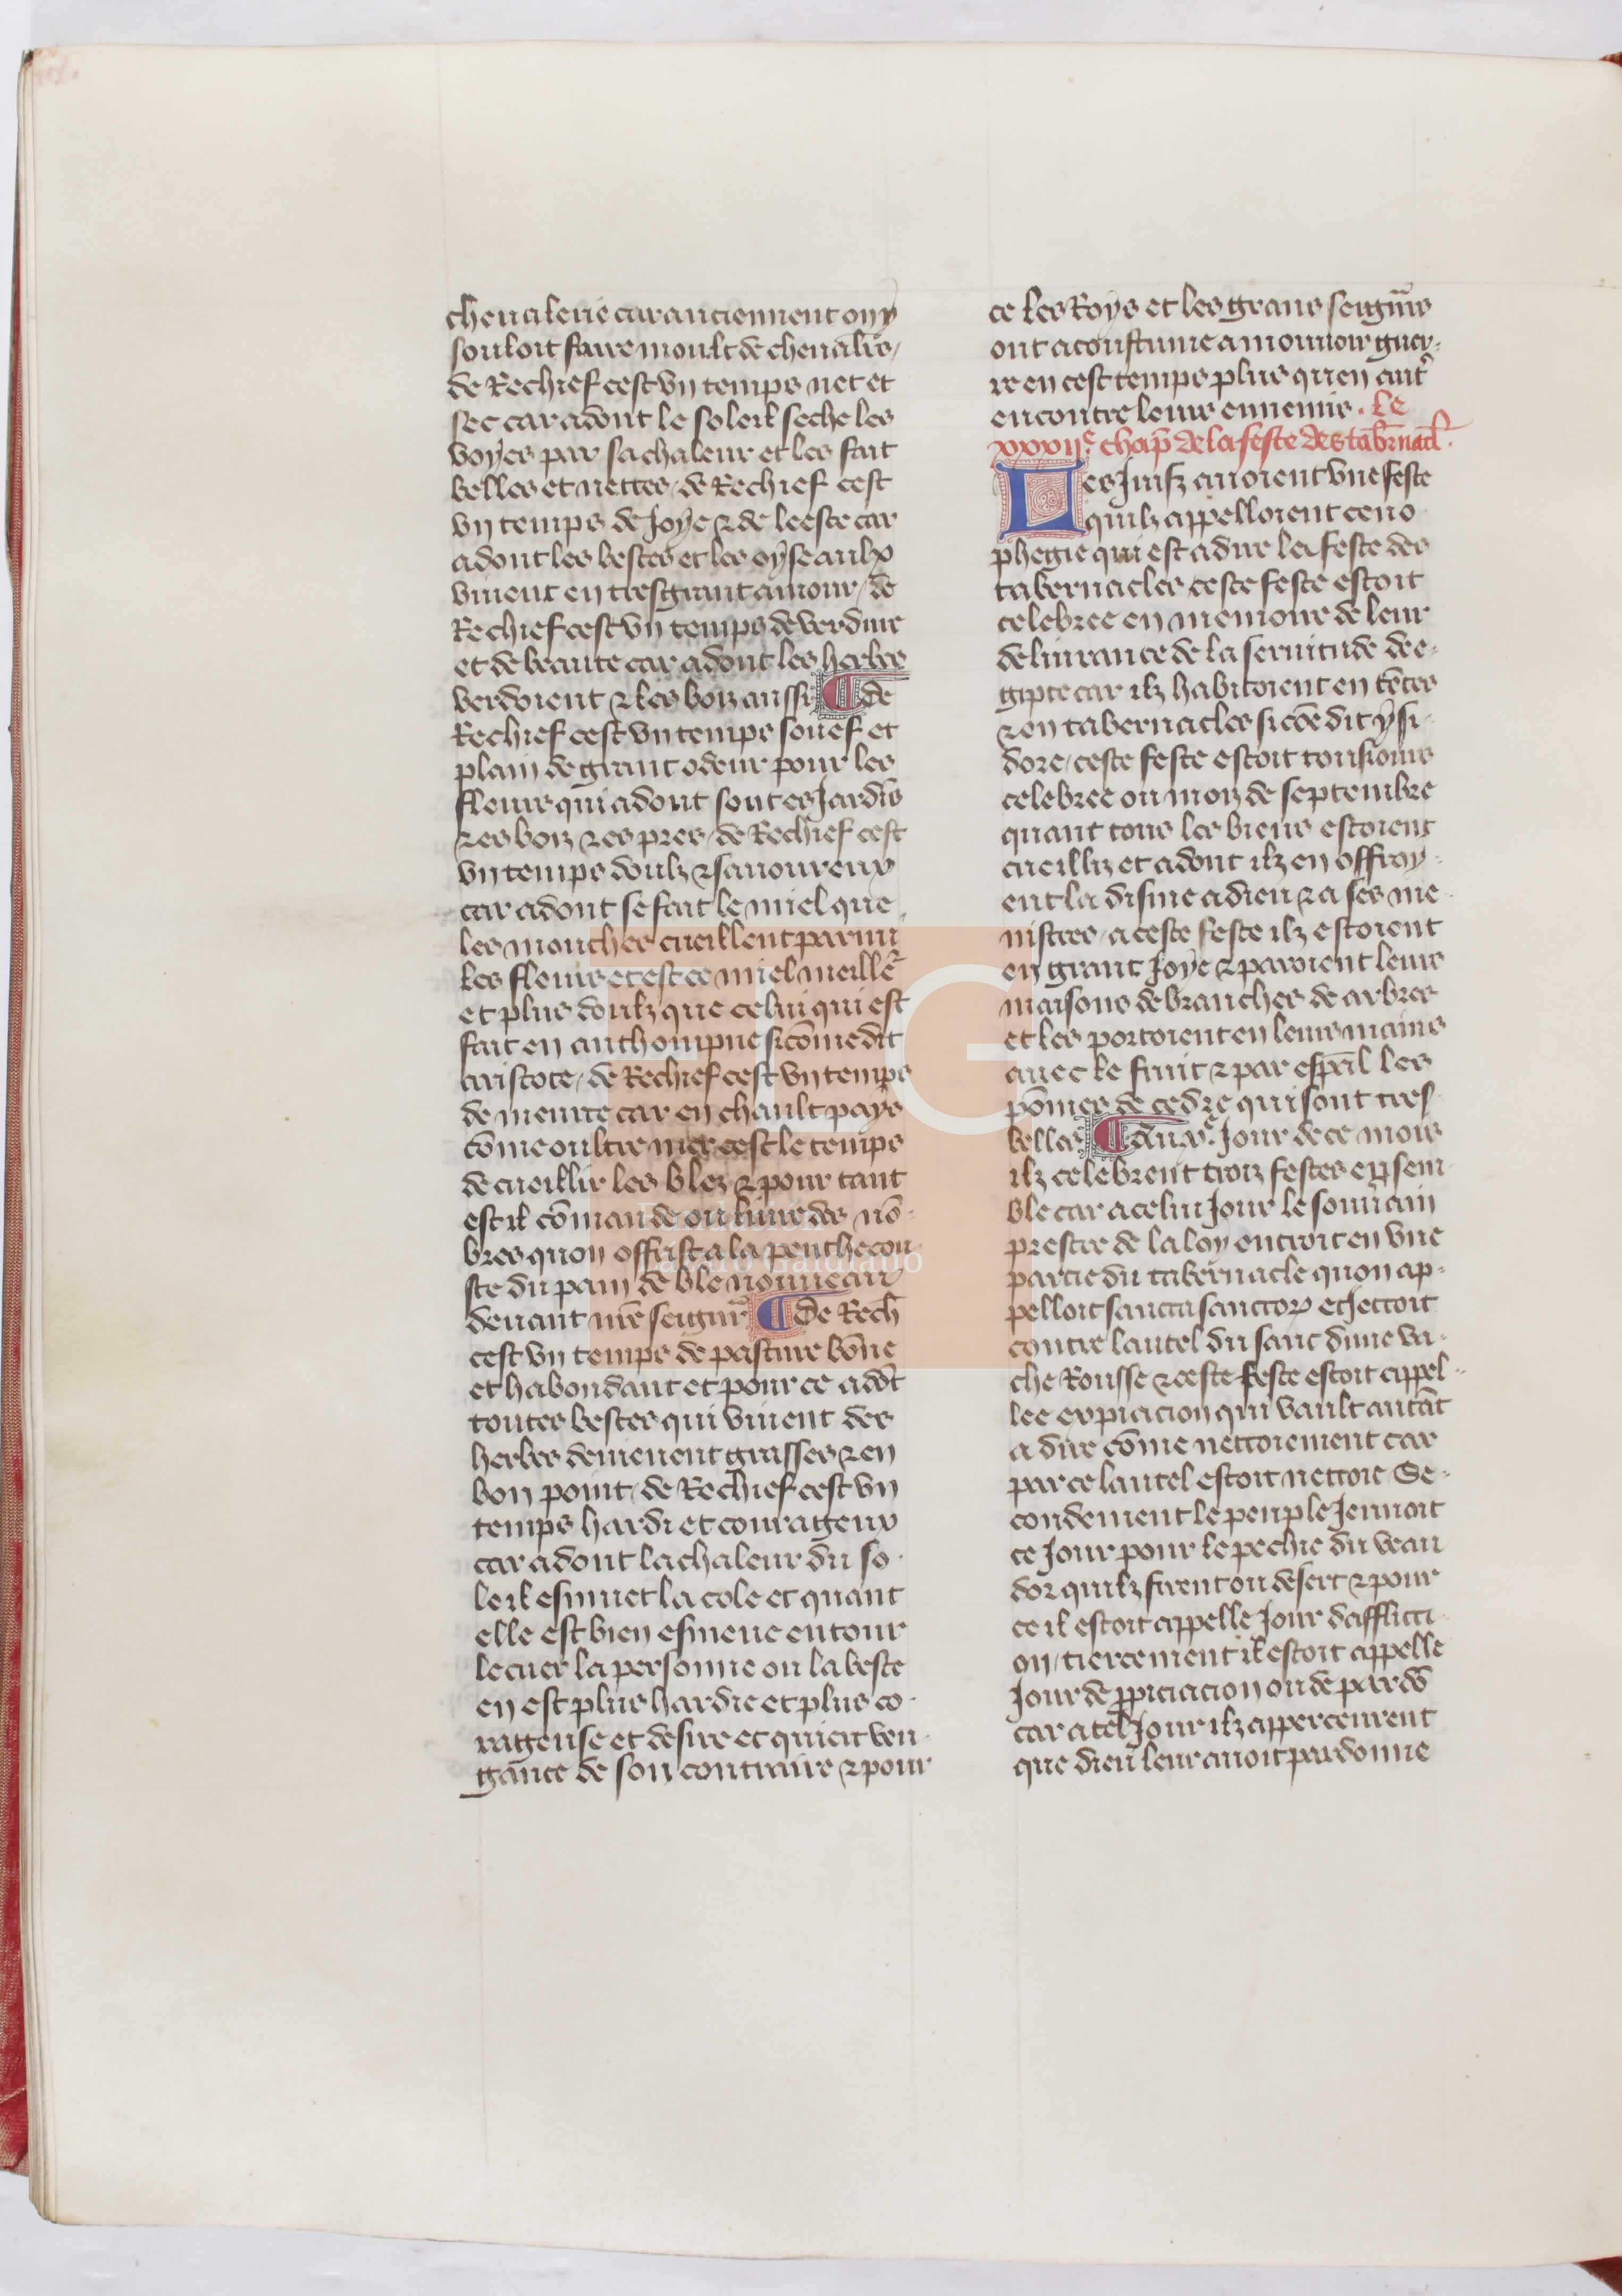 cheualerie car anciennement on y
souloit faire moult de cheualrs /
de Rechief cest vn temps net et
sec car adont le soleil seche les
voyes par sa chaleur et les fait
belles et nettes / de Rechief cest
vn temps de Joye ⁊ de leesce car
adont les bestes et les oyseaulx
viuent en tresgrant amour / de
Rechief cest vn temps de verdure
et de beaute car adont les herbes
verdoient ⁊ les boiz aussi ¶ de
Rechief cest vn temps souef et
plain de grant odeur pour les
fleurs qui adont sont es Jardīs
⁊ es boiz ⁊ es pres / de Rechief cest
vn temps doulz ⁊ sauoureux
car adont se fait le miel que
les mouches cueillent parmi
les fleurs et est ce miel meillẽ
et plus doulz que celui qui est
fait en authompne sicōme dit
aristote / de Rechief cest vn temps
de meurte car en chault pays
cōme oultre mer cest le temps
de cueillir les blez ⁊ pour tant
est il cōmande ou liure des nō-
bres quon offrist a la penthecou-
ste du pain de ble nouueau
deuant nr̄e seignr̄ ¶ de Rech̄
cest vn temps de pasture bōne
et habondant et pour ce adōt
toutes bestes qui viuent des
herbes deuienent grasses ⁊ en
bon point / de Rechief cest vn
temps hardi et courageux
car adont la chaleur du so-
leil esmuet la cole et quant
elle est bien esmeue entour
le cuer la personne ou la beste
en est plus hardie et plus co-
rageuse et desire et quiert ven-
gāce de son contraire ⁊ pour
ce les Roys et les grans seignr̄s
ont acoustume a mouuoir guer-
re en cest temps plus qu en aut̾
encontre leurs ennemis . Le
xxxiiᵉ. chap̄ de la feste des tab̄rnacl̄.
Les Juifz auoient vne feste
quilz appelloient ceno
phegie qui est a dire la feste des
tabernacles ceste feste estoit
celebree en memoire de leur
deliurance de la seruitude de e-
gipte car ilz habitoient en tētes
⁊ en tabernacles si cōe dit ysi-
dore / ceste feste estoit tousiours
celebree ou moiz de septembre
quant tous les biens estoient
cueilliz et adont ilz en offroy-
ent la disme a dieu ⁊ a ses me-
nistres / a ceste feste ilz estoient
en grant Joye ⁊ paroient leurs
maisons de branches de arbres
et les portoient en leurs mains
auec le fruit ⁊ par esp̄al les
pōmes de cedre qui sont tres
belles ¶ au xᵉ. Jour de ce mois
ilz celebrent troiz festes ensem-
ble car a celui Jour le souuain
prestre de la loy entroit en vne
partie du tabernacle quon ap-
pelloit sancta sanctoꝝ et Jettoit
contre lautel du sanc dune va-
che Rousse ⁊ ceste feste estoit appel-
lee expiacion qui vault autāt
a dire cōme nettoiement car
par ce lautel estoit nettoie Se-
condement le peuple Jeunoit
ce Jour pour le pechie du veau
dor quilz firent ou desert ⁊ pour
ce il estoit appelle Jour dafflicti-
on / tiercement il estoit appelle
Jour de ꝓpiciacion ou de pardō
car a tel Jour ilz apperceurent
que dieu leur auoit pardonne